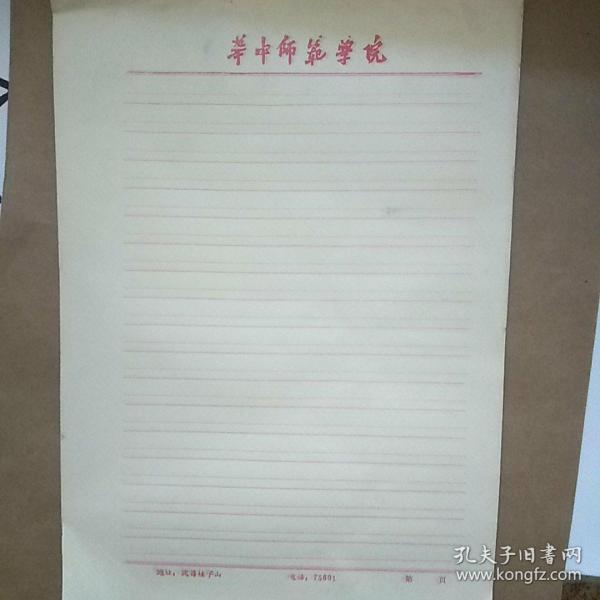 华中师范学院
地址：武昌桂子山 电话：75601 第 页
孔夫子旧书网
www.kongfz.com